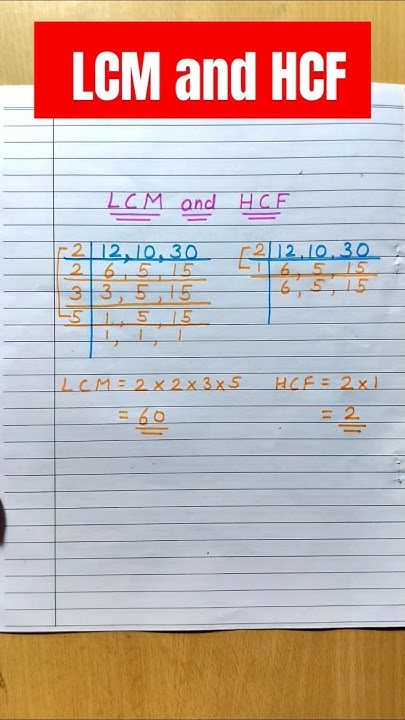 LCM and HCF
LCM and HCF
2 | 12, 10, 30
2 | 6, 5, 15
3 | 3, 5, 15
5 | 1, 5, 15
1, 1, 1
LCM = 2 × 2 × 3 × 5
= 60
2 | 12, 10, 30
1 | 6, 5, 15
6, 5, 15
HCF = 2 × 1
= 2